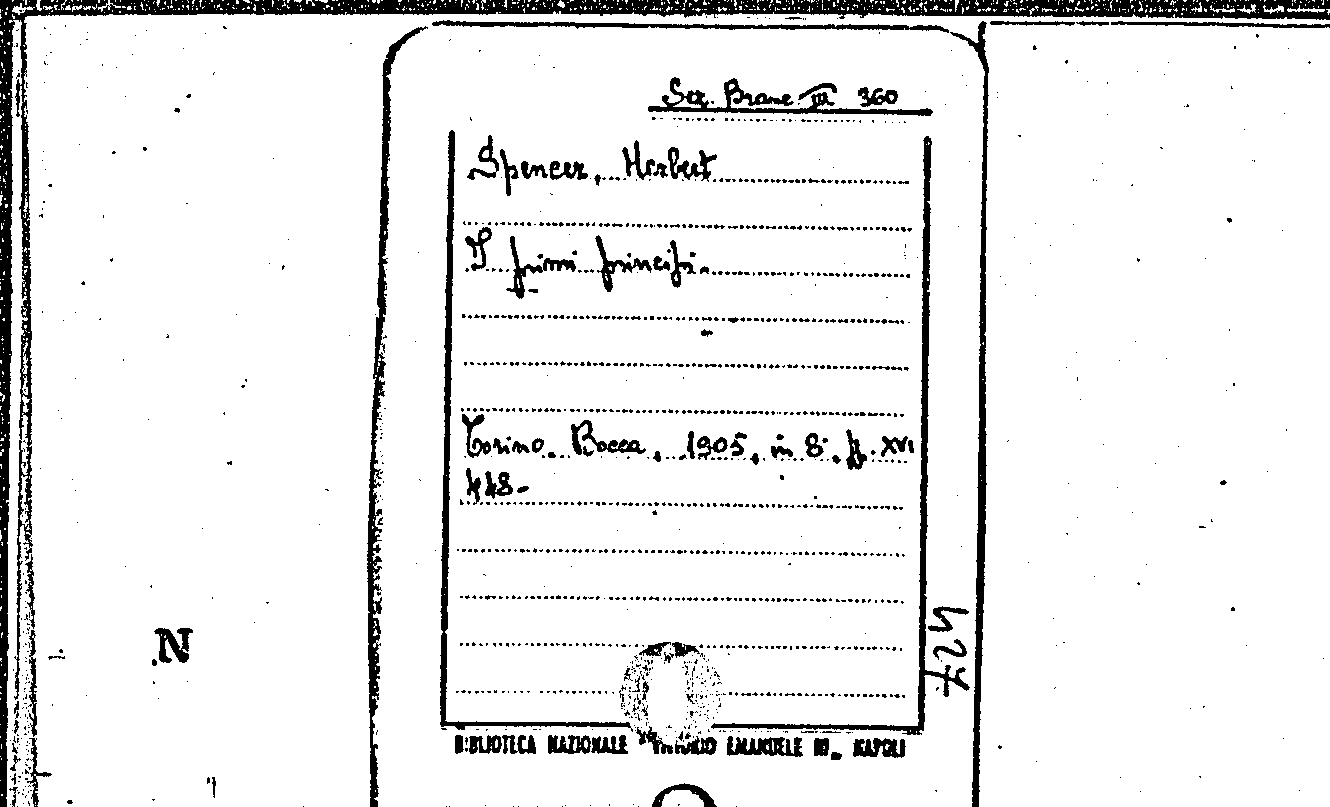 Sez. Branc. III 360
Spencer, Herbert
I primi principi.
Torino. Bocca, 1905, in 8°. p. XVI
448-
427
N
BIBLIOTECA NAZIONALE "VITTORIO EMANUELE III„ NAPOLI